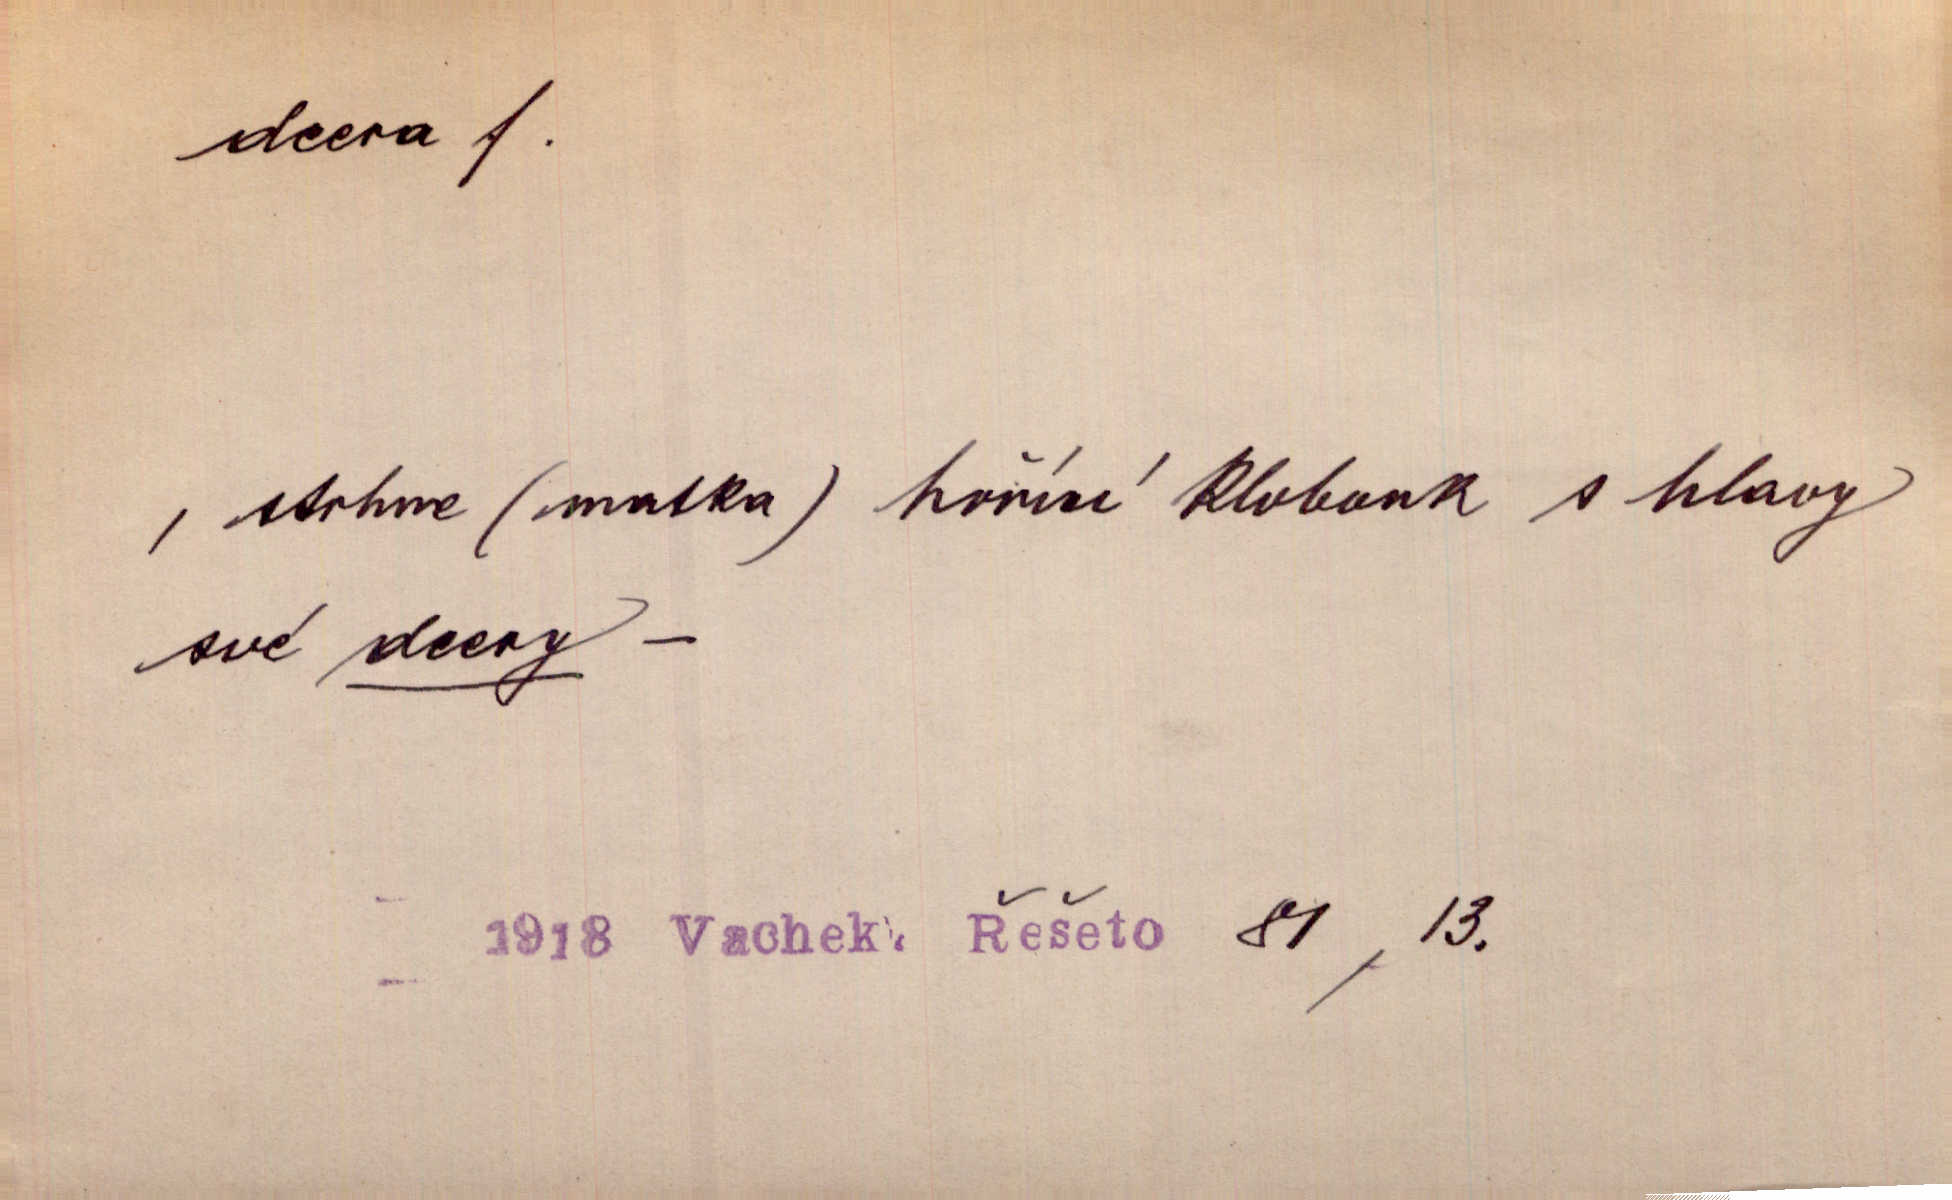 dcera f.
, strhne (matka) hořící klobouk s hlavy
své dcery –
1918 Vachek. Řešeto 81, 13.